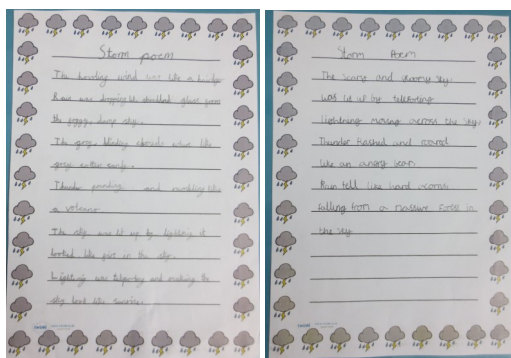 Storm poem
The howling wind was like a
Rain was dropping like shredded glass from
the foggy, damp sky.
The grey, blinding clouds were like
grey cotton candy.
Thunder pounding and rumbling like
a volcano.
The sky was lit up by lightning it
looked like fire in the sky.
Lightning was teleporting and making the
sky look like sunrise.
Storm Poem
The scary and gloomy sky.
Was lit up by
lightning moving across the sky.
Thunder and roared
like an angry bear.
Rain fell like hard acorns
falling from a massive forest in
the sky